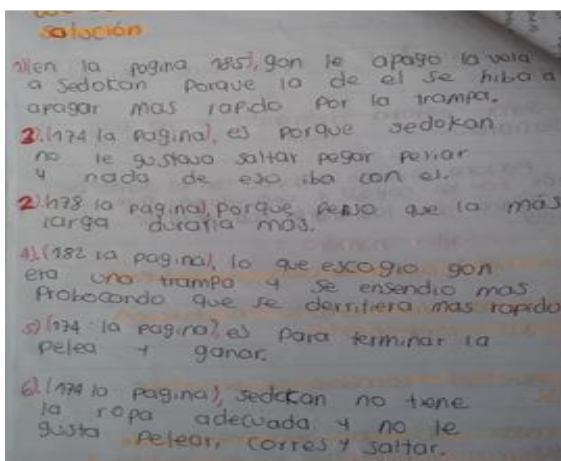 solución
1)(en la pagina 185), gon le apago la vela
a sedokan porque la de el se hiba a
apagar mas rapido por la trampa.
2).(174 la pagina), es porque sedokan
no le gustava saltar pegar periar
y nada de eso iba con el.
2).178 la pagina), porque penso que la más
larga duraria más.
4).(182 la pagina), lo que escogio gon
era una trampa y se ensendio mas
Probocando que se derritiera mas rapido
5)(174 la pagina), es para terminar la
pelea y ganar.
6).(174 la pagina), sedokan no tiene
la ropa adecuada y no le
gusta pelear, corres y saltar.